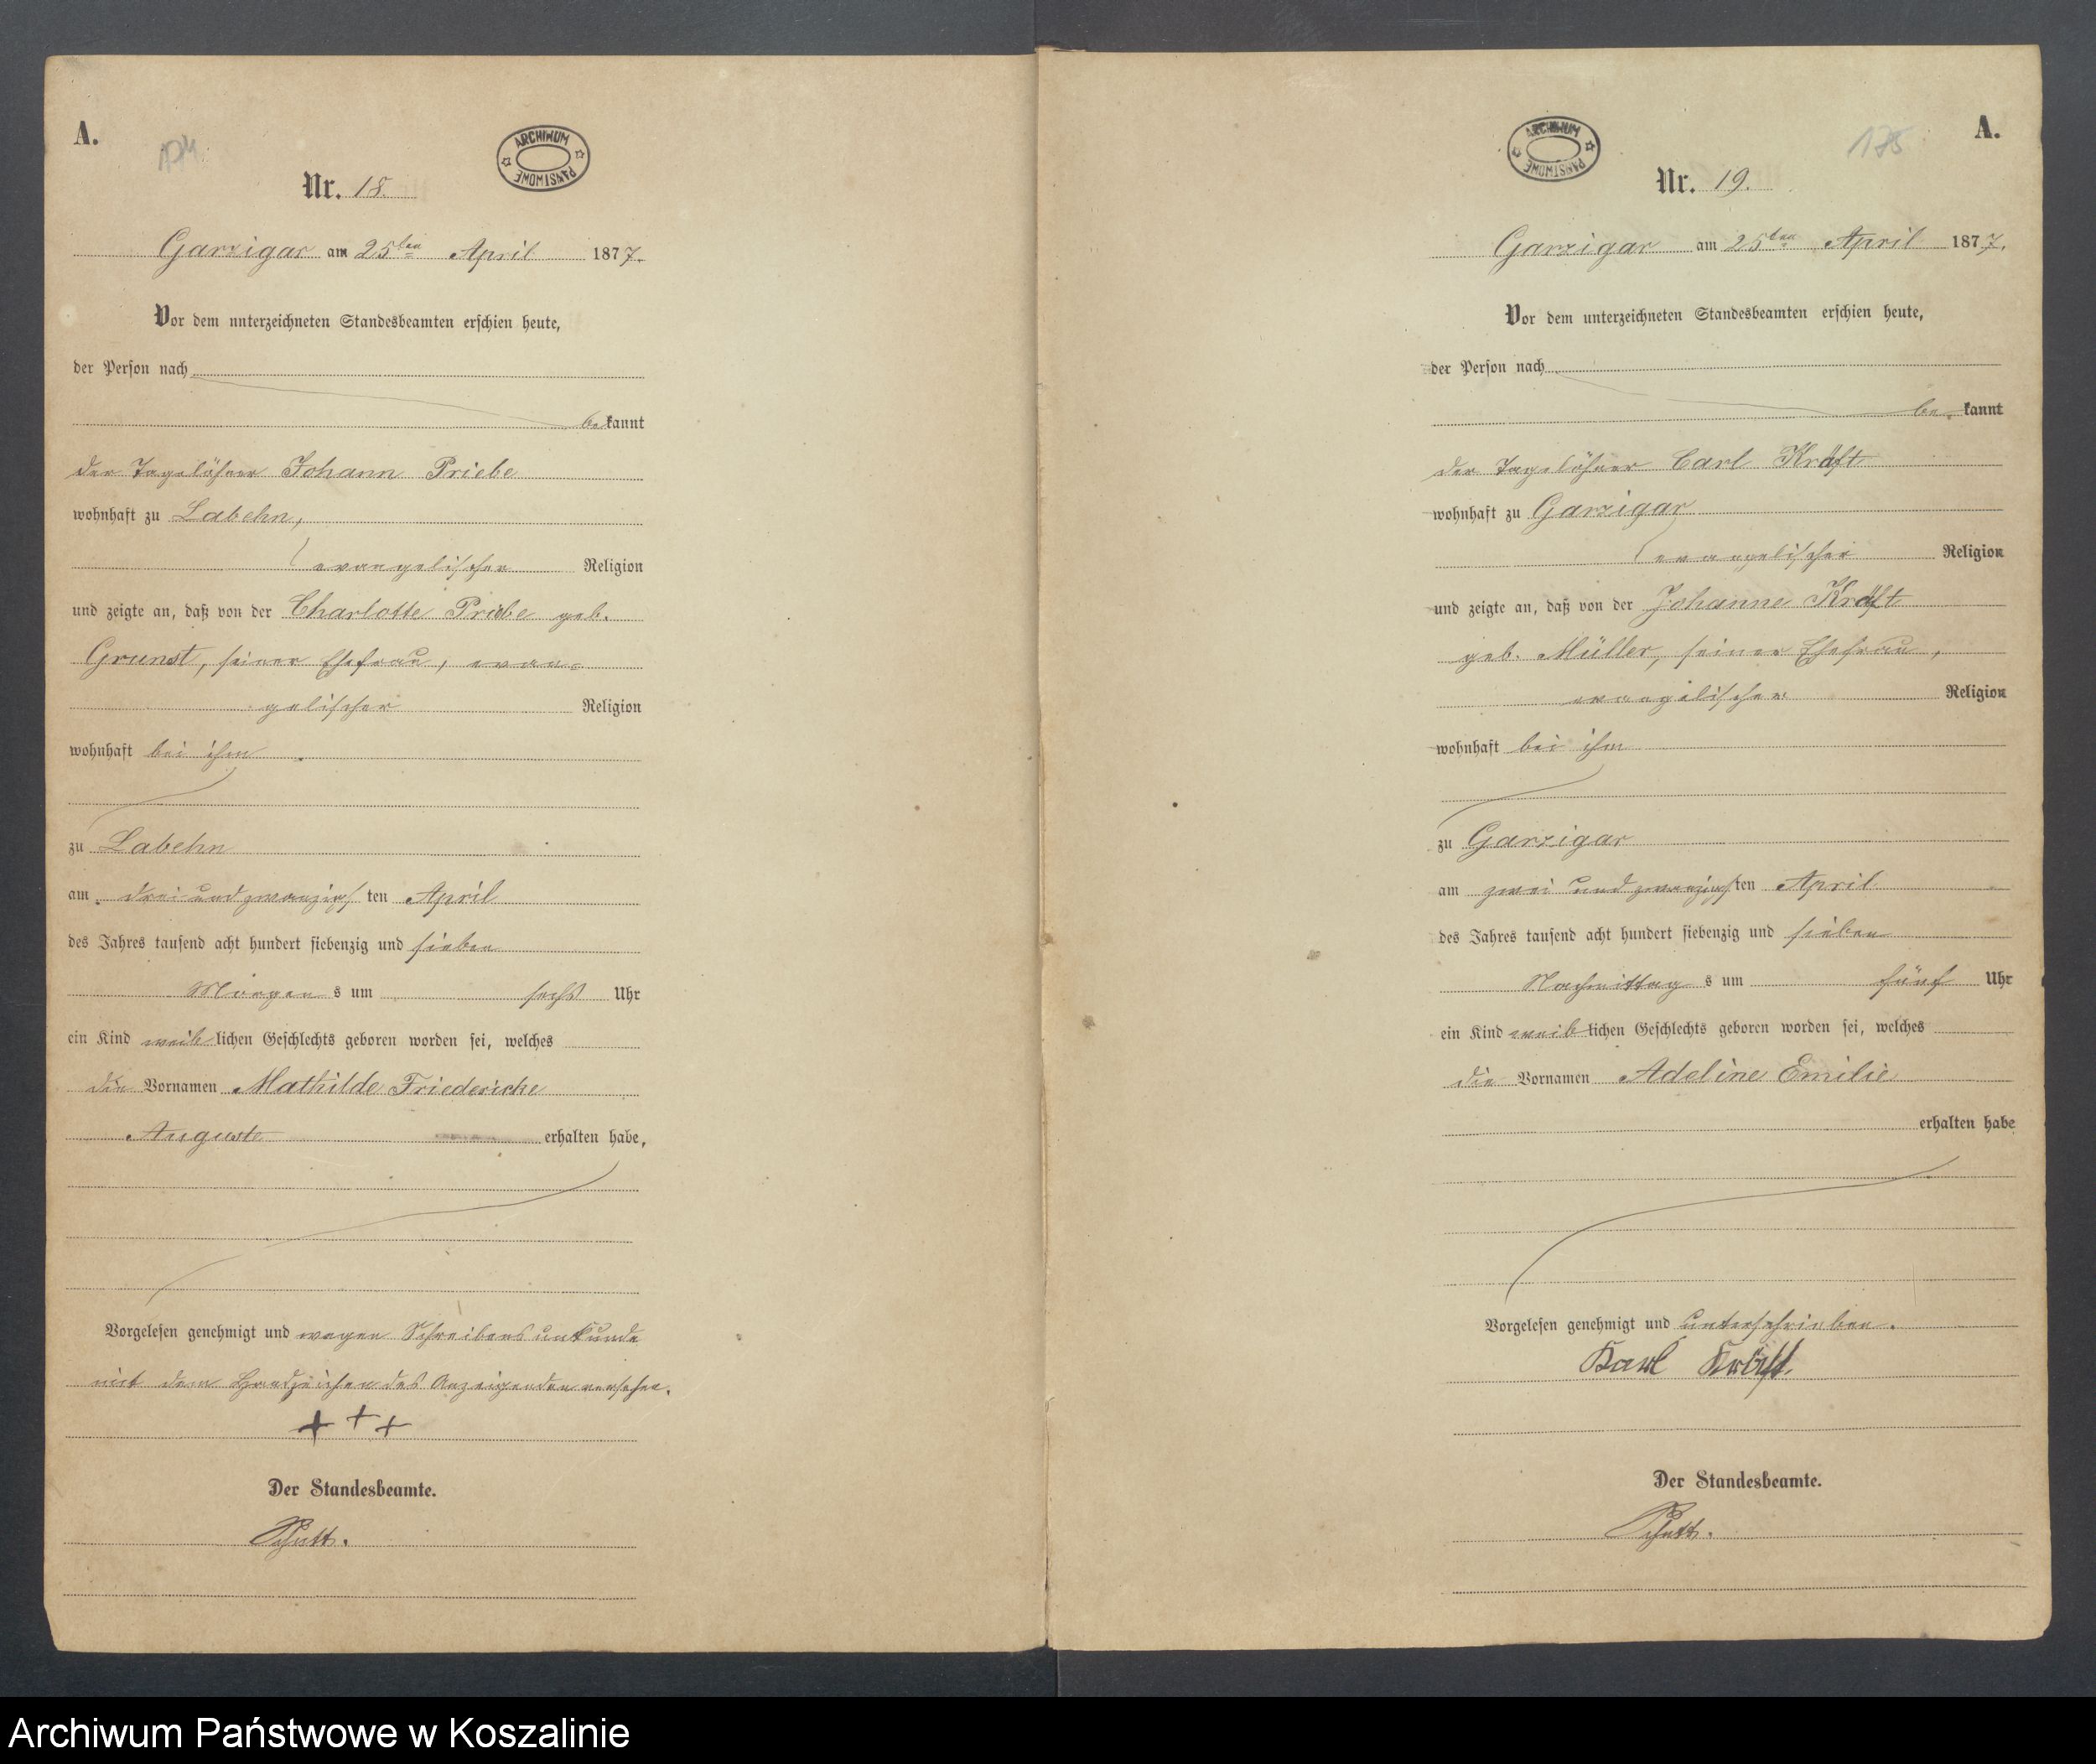 A.
174
ARCHIWUM PAŃSTWOWE
Nr. 18.
Garzigar am 25ten April 1877.
Vor dem unterzeichneten Standesbeamten erschien heute,
der Person nach
bekannt
der Tagelöhner Johann Priebe
wohnhaft zu Labehn,
evangelischer Religion
und zeigte an, daß von der Charlotte Priebe geb.
Grunst, seiner Ehefrau, evan=
gelischer Religion
wohnhaft bei ihm
zu Labehn
am dreiundzwanzigsten April
des Jahres tausend acht hundert siebenzig und sieben
Morgens um sechs Uhr
ein Kind weiblichen Geschlechts geboren worden sei, welches
die Vornamen Mathilde Friedericke
Auguste erhalten habe,
Vorgelesen genehmigt und wegen Schreibensunkunde
mit dem Handzeichen des Anzeigenden versehen.
+ + +
Der Standesbeamte.
A.
175
ARCHIWUM PAŃSTWOWE
Nr. 19.
Garzigar am 25ten April 1877.
Vor dem unterzeichneten Standesbeamten erschien heute,
der Person nach
bekannt
der Tagelöhner Carl Kräft
wohnhaft zu Garzigar
evangelischer Religion
und zeigte an, daß von der Johanne Kräft
geb. Müller, seiner Ehefrau,
evangelischer Religion
wohnhaft bei ihm
zu Garzigar
am zwei und zwanzigsten April
des Jahres tausend acht hundert siebenzig und sieben
Nachmittags um fünf Uhr
ein Kind weiblichen Geschlechts geboren worden sei, welches
die Vornamen Adeline Emilie
erhalten habe
Vorgelesen genehmigt und unterschrieben.
Karl Kräft.
Der Standesbeamte.
Archiwum Państwowe w Koszalinie